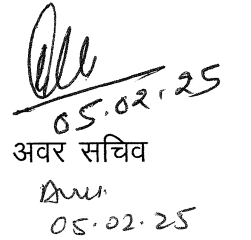 05.02.25
अवर सचिव
05.02.25